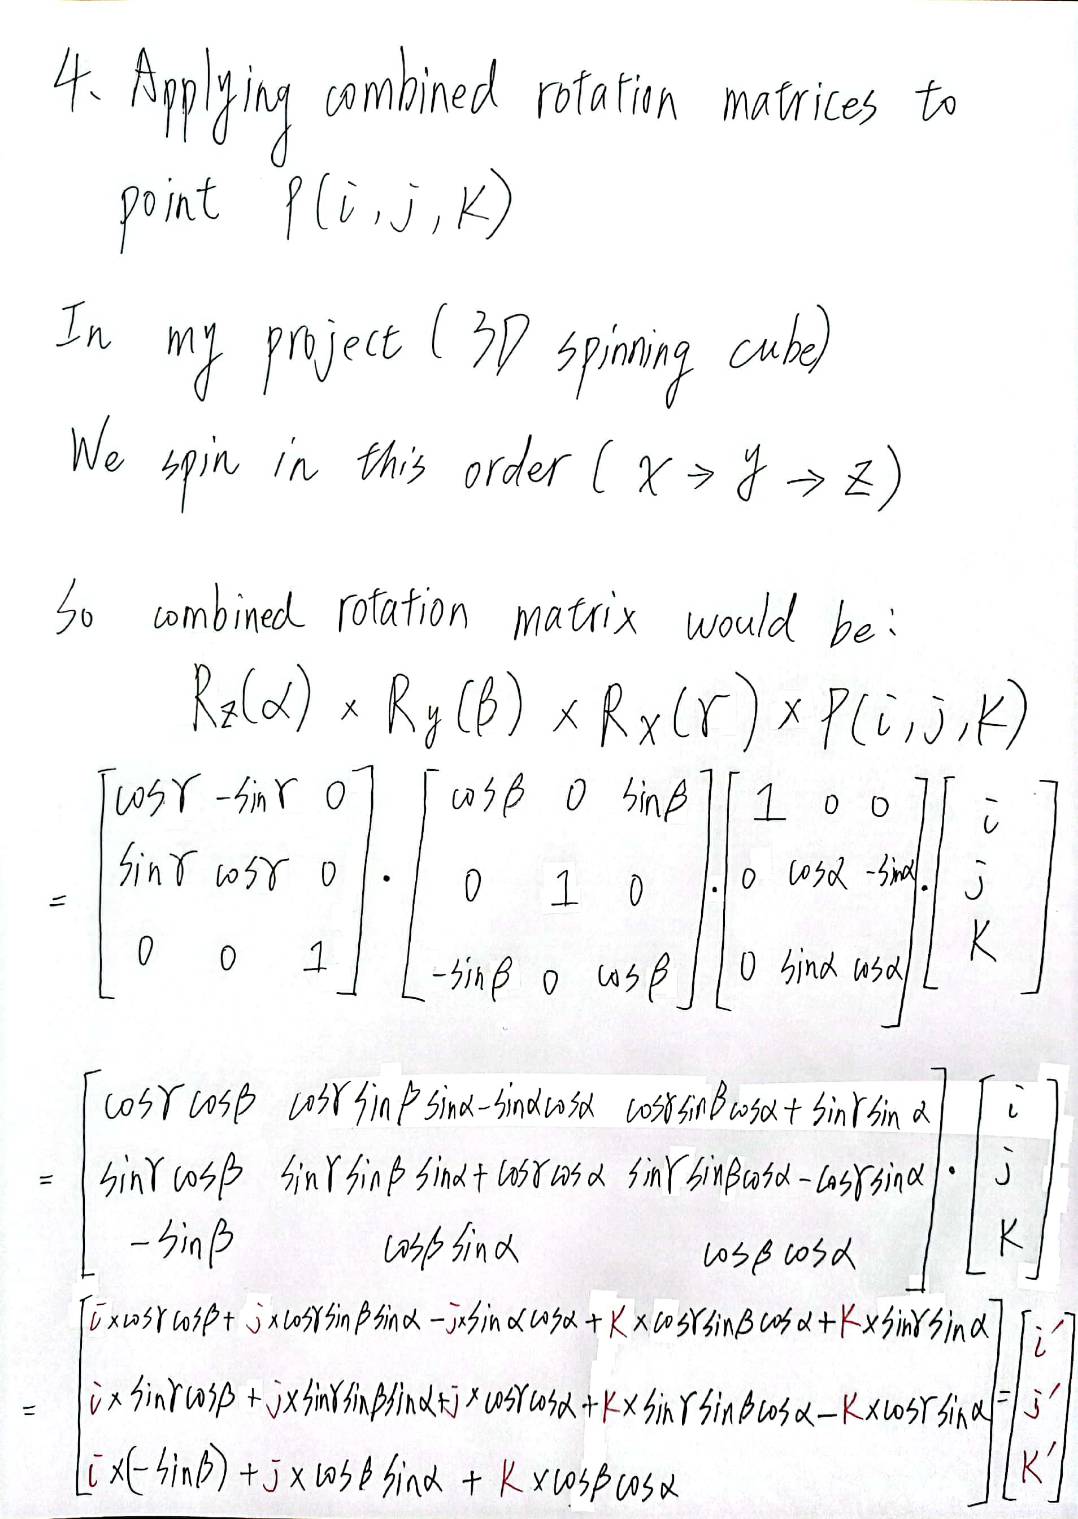 4. Applying combined rotation matrices to
point P(i,j,K)
In my project (3D spinning cube)
We spin in this order (x → y → z)
So combined rotation matrix would be:
Rz(α) × Ry(β) × Rx(γ) × P(i,j,K)
= [cosγ -sinγ 0] · [cosβ 0 sinβ] · [1 0 0] · [i]
[sinγ cosγ 0] [0 1 0] [0 cosα -sinα] [j]
[0 0 1] [-sinβ 0 cosβ] [0 sinα cosα] [K]
= [cosγcosβ cosγsinβsinα-sinαcosα cosγsinβcosα+sinγsinα] · [i]
[sinγcosβ sinγsinβsinα+cosγcosα sinγsinβcosα-cosγsinα] [j]
[-sinβ cosβsinα cosβcosα] [K]
= [i×cosγcosβ+j×cosγsinβsinα-j×sinαcosα+K×cosγsinβcosα+K×sinγsinα] = [i′]
[i×sinγcosβ+j×sinγsinβsinα+j×cosγcosα+K×sinγsinβcosα-K×cosγsinα] [j′]
[i×(-sinβ)+j×cosβsinα+K×cosβcosα] [K′]